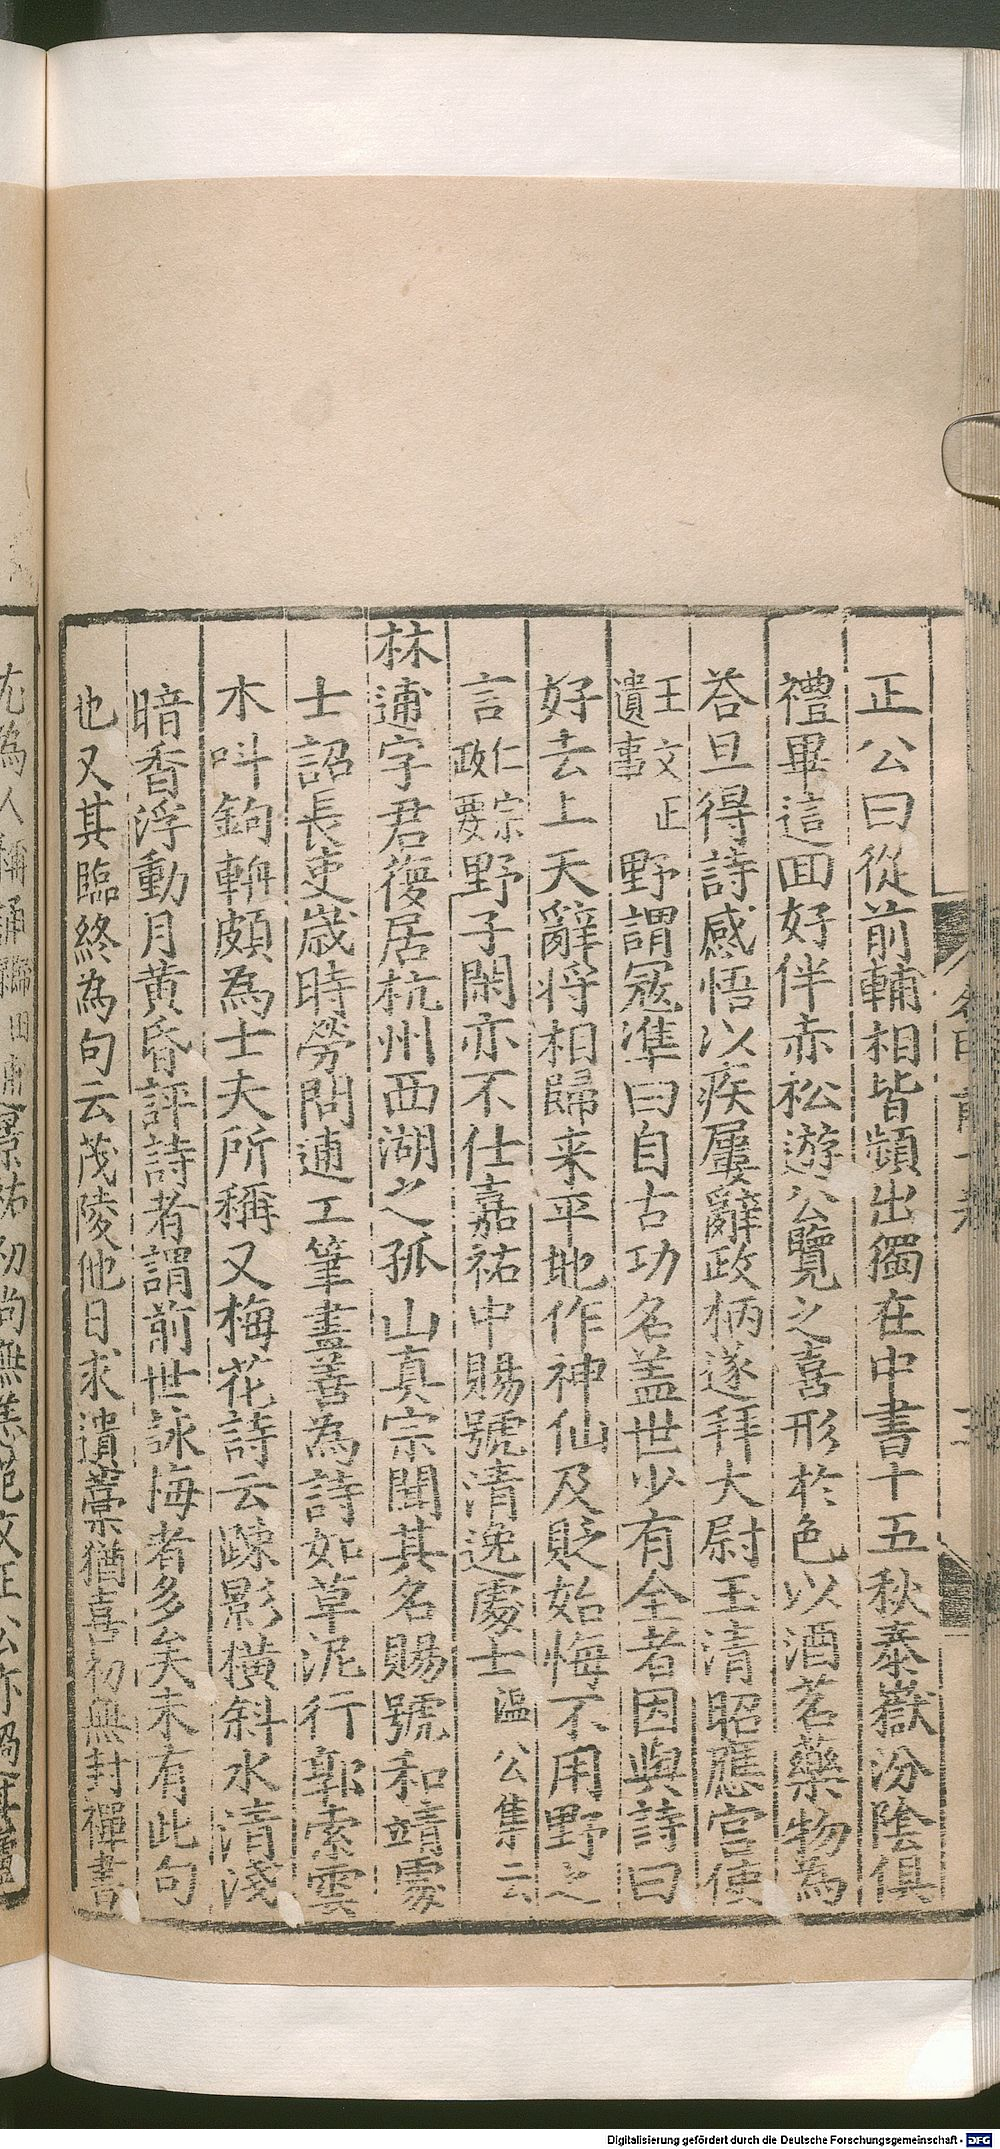 正公曰從前輔相皆頻出獨在中書十五秋泰嶽汾陰俱
禮畢這囬好伴赤松遊公覽之喜形於色以酒茗藥物為
荅旦得詩感悟以疾屢辭政柄遂拜大尉玉清昭應宫使
王文正遺事野謂寇準曰自古功名盖世少有全者因與詩曰
好去上天辭将相歸来平地作神仙及貶始悔不用野之
言仁宗政要野子閑亦不仕嘉祐中賜號清逸處士温公集云
林逋字君復居杭州西湖之孤山真宗聞其名賜號和靖處
士詔長吏歳時勞問逋工筆畫善為詩如草泥行郭索雲
木呌鉤輈頗為士夫所稱又梅花詩云踈影横斜水清淺
暗香浮動月黄昏評詩者謂前世詠梅者多矣未有此句
也又其臨終為句云茂陵他日求遺藁猶喜初無封禪書
Digitalisierung gefördert durch die Deutsche Forschungsgemeinschaft - DFG